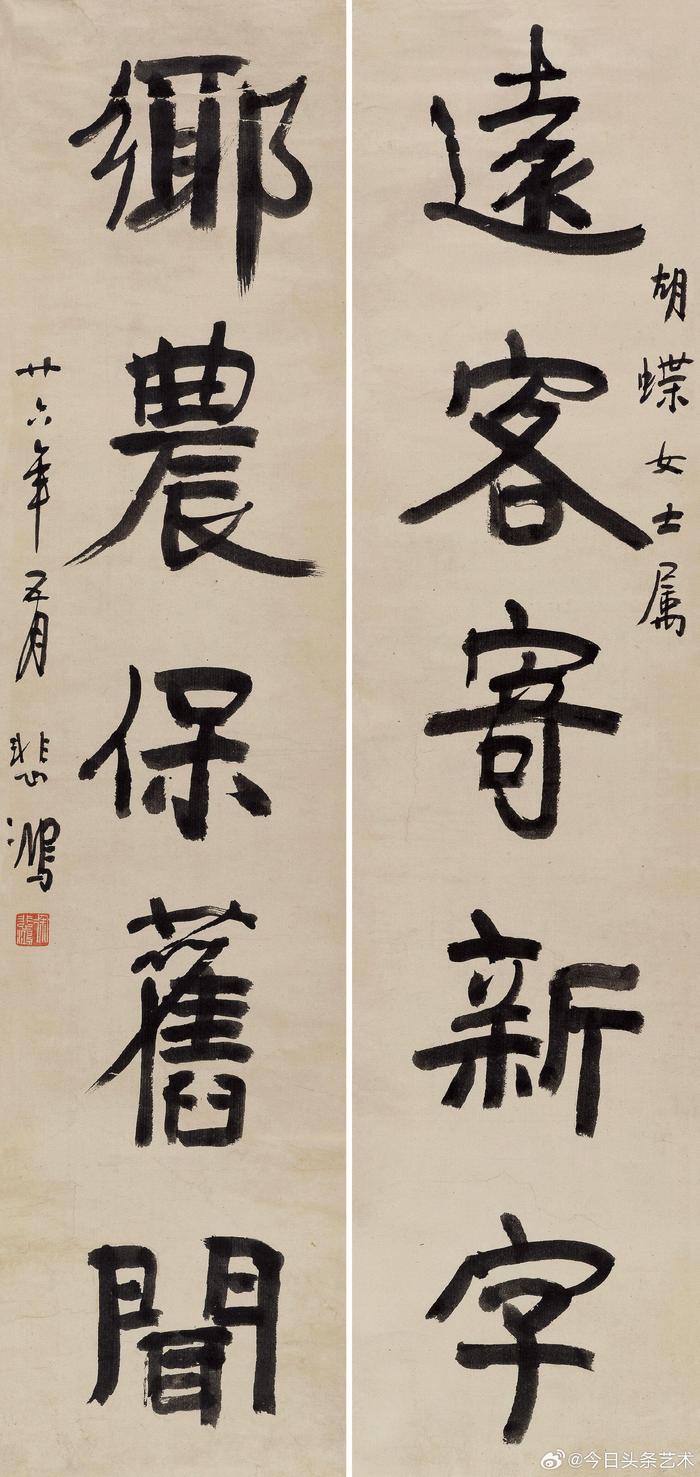 胡蝶女士属
遠客寄新字
鄉農保舊聞
廿六年五月 悲鴻
徐悲鴻
@今日头条艺术